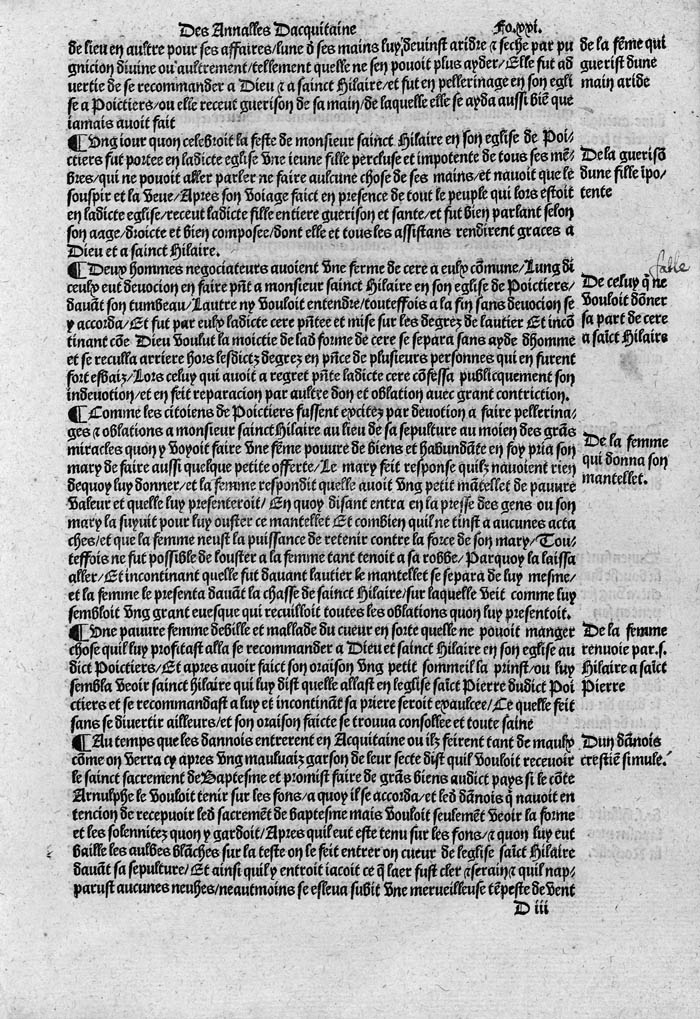 Des Annalles Dacquitaine Fo.xxi.
de lieu en aultre pour ses affaires/lune d ses mains luy devinst aridre ⁊ seche par pu
gnicion divine ou aultrement/tellement quelle ne sen pouoit plus ayder/Elle fut ad
vertie de se recommander a Dieu ⁊ a sainct Hilaire/et fut en pellerinage en son egli
se a Poictiers/ou elle receut guerison de sa main/de laquelle elle se ayda aussi biē que
iamais avoit fait
de la fēme qui
guerist dune
main aride
¶Ung iour quon celebroit la feste de monsieur sainct Hilaire en son eglise de Poi-
ctiers fut portee en ladicte eglise vne ieune fille percluse et impotente de tous ses mē-
bres/qui ne pouoit aller parler ne faire aulcune chose de ses mains/et navoit que le
souspir et la veue/Apres son voiage faict en presence de tout le peuple qui lors estoit
en ladicte eglise/receut ladicte fille entiere guerison et sante/et fut bien parlant selon
son aage/droicte et bien composee/dont elle et tous les assistans rendirent graces a
Dieu et a sainct Hilaire.
De la guerisō
dune fille īpo-
tente
¶Deux hommes negociateurs avoient vne ferme de cere a eulx cōmune/Lung di
ceulx eut devocion en faire pn̄t a monsieur sainct Hilaire en son eglise de Poictiers/
davāt son tumbeau/Lautre ny vouloit entendre/touteffois a la fin sans devocion se
y accorda/Et fut par eulx ladicte cere pn̄tee et mise sur les degrez de lautier Et incō
tinant cōe Dieu voulut la moictie de lad forme de cere se separa sans ayde dhomme
et se reculla arriere hors lesdictz degrez en pn̄ce de plusieurs personnes qui en furent
fort esbaiz/Lors celuy qui avoit a regret pn̄te ladicte cere cōfessa publicquement son
indevotion/et en feit reparacion par aultre don et oblation avec grant contriction.
fable
De celuy q̄ ne
vouloit dōner
sa part de cere
a saīct Hilaire
¶Comme les citoiens de Poictiers fussent excitez par devotion a faire pellerina-
ges ⁊ oblations a monsieur sainct Hilaire au lieu de sa sepulture au moien des grās
miracles quon y voyoit faire vne fēme pouvre de biens et habundāte en foy pria son
mary de faire aussi quelque petite offerte/Le mary feit response quilz navoient rien
dequoy luy donner/et la femme respondit quelle avoit vng petit mātellet de pauvre
valeur et quelle luy presenteroit/En quoy disant entra en la presse des gens ou son
mary la suyuit pour luy ouster ce mantellet Et combien quil ne tinst a aucunes acta
ches/et que la femme neust la puissance de retenir contre la force de son mary/Tou-
teffois ne fut possible de louster a la femme tant tenoit a sa robbe/Parquoy la laissa
aller/Et incontinant quelle fut davant lautier le mantellet se separa de luy mesme/
et la femme le presenta davāt la chasse de sainct Hilaire/sur laquelle veit comme luy
sembloit vng grant evesque qui recuilloit toutes les oblations quon luy presentoit.
De la femme
qui donna son
mantellet.
¶Vne pauvre femme debille et mallade du cueur en sorte quelle ne pouoit manger
chose quil luy profitast alla se recommander a Dieu et sainct Hilaire en son eglise au
dict Poictiers/Et apres avoir faict son oraison vng petit sommeil la prinst/ou luy
sembla veoir sainct hilaire qui luy dist quelle allast en leglise saīct Pierre dudict Poi
ctiers et se recommandast a luy et incontināt sa priere seroit exaulcee/Ce quelle feit
sans se divertir ailleurs/et son oraison faicte se trouva consollee et toute saine
De la femme
renvoie par.s.
Hilaire a saīct
Pierre
¶Au temps que les dannois entrerent en Acquitaine ou ilz feirent tant de maulx
cōme on verra cy apres vng mauluaiz garson de leur secte dist quil vouloit recevoir
le sainct sacrement de Baptesme et promist faire de grās biens audict pays si le cōte
Arnulphe le vouloit tenir sur les fons/a quoy il se accorda/et led dānois q̄ navoit en
tencion de recepvoir led sacremēt de baptesme mais vouloit seulemēt veoir la forme
et les solennitez quon y gardoit/Apres quil eut este tenu sur les fons/⁊ quon luy eut
baille les aulbes blāches sur la teste on le feit entrer on cueur de leglise saīct Hilaire
davāt sa sepulture/Et ainsi quil y entroit iacoit ce q̄ laer fust cler ⁊ serain/⁊ quil nap-
parust aucunes neuhes/neautmoins se esleva subit vne merveilleuse tēpeste de vent
Dun dānois
crestiē simule.
D iii